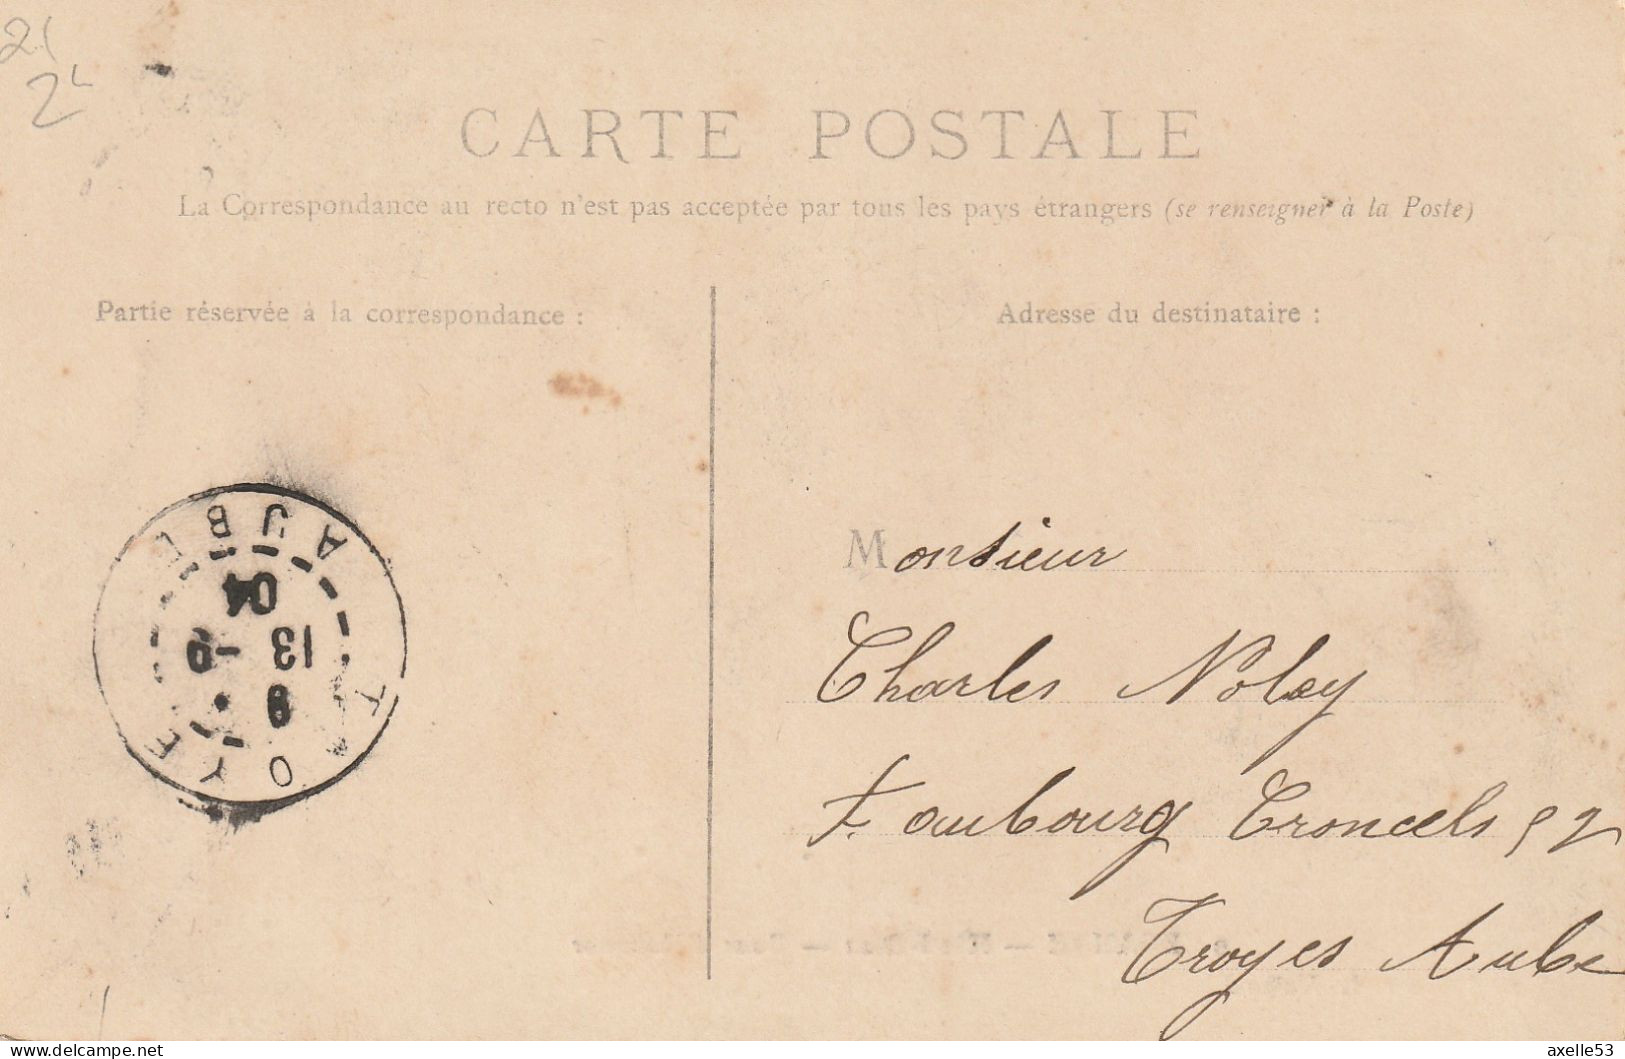 21
2
CARTE POSTALE
La Correspondance au recto n'est pas acceptée par tous les pays étrangers (se renseigner à la Poste)
Partie réservée à la correspondance :
Adresse du destinataire :
Monsieur
Charles Noley
Faubourg Croncels 92
Troyes Aube
TROYES
AUBE
13 -9
04
www.delcampe.net
axelle53